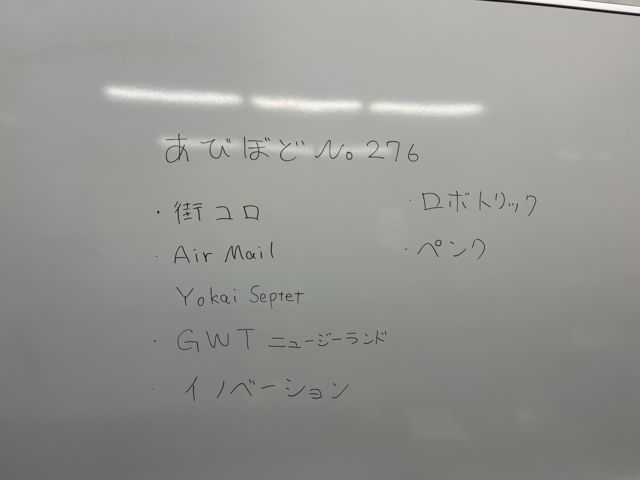 あびぼど No.276
・街コロ
・Air Mail
・Yokai Septet
・GWT ニュージーランド
・イノベーション
・ロボトリック
・ペンク